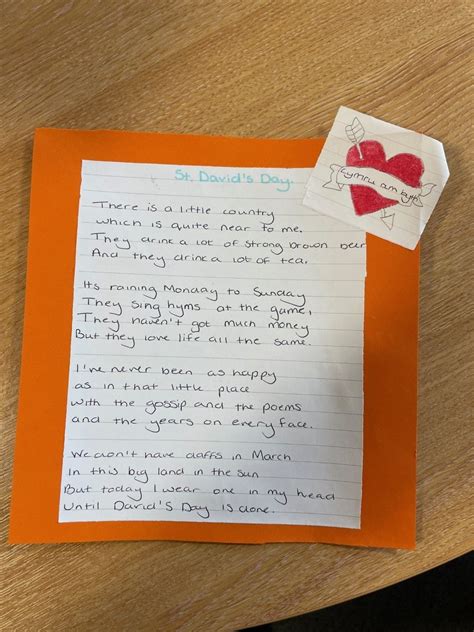 St. David's Day.
Cymru am byth
There is a little country
which is quite near to me.
They drink a lot of strong brown beer
And they drink a lot of tea.
Its raining Monday to Sunday
They sing hyms at the game,
They haven't got much money
But they love life all the same.
I've never been as happy
as in that little place
with the gossip and the poems
and the years on every face.
We don't have daffs in March
In this big land in the sun
But today I wear one in my head
Until David's Day is done.